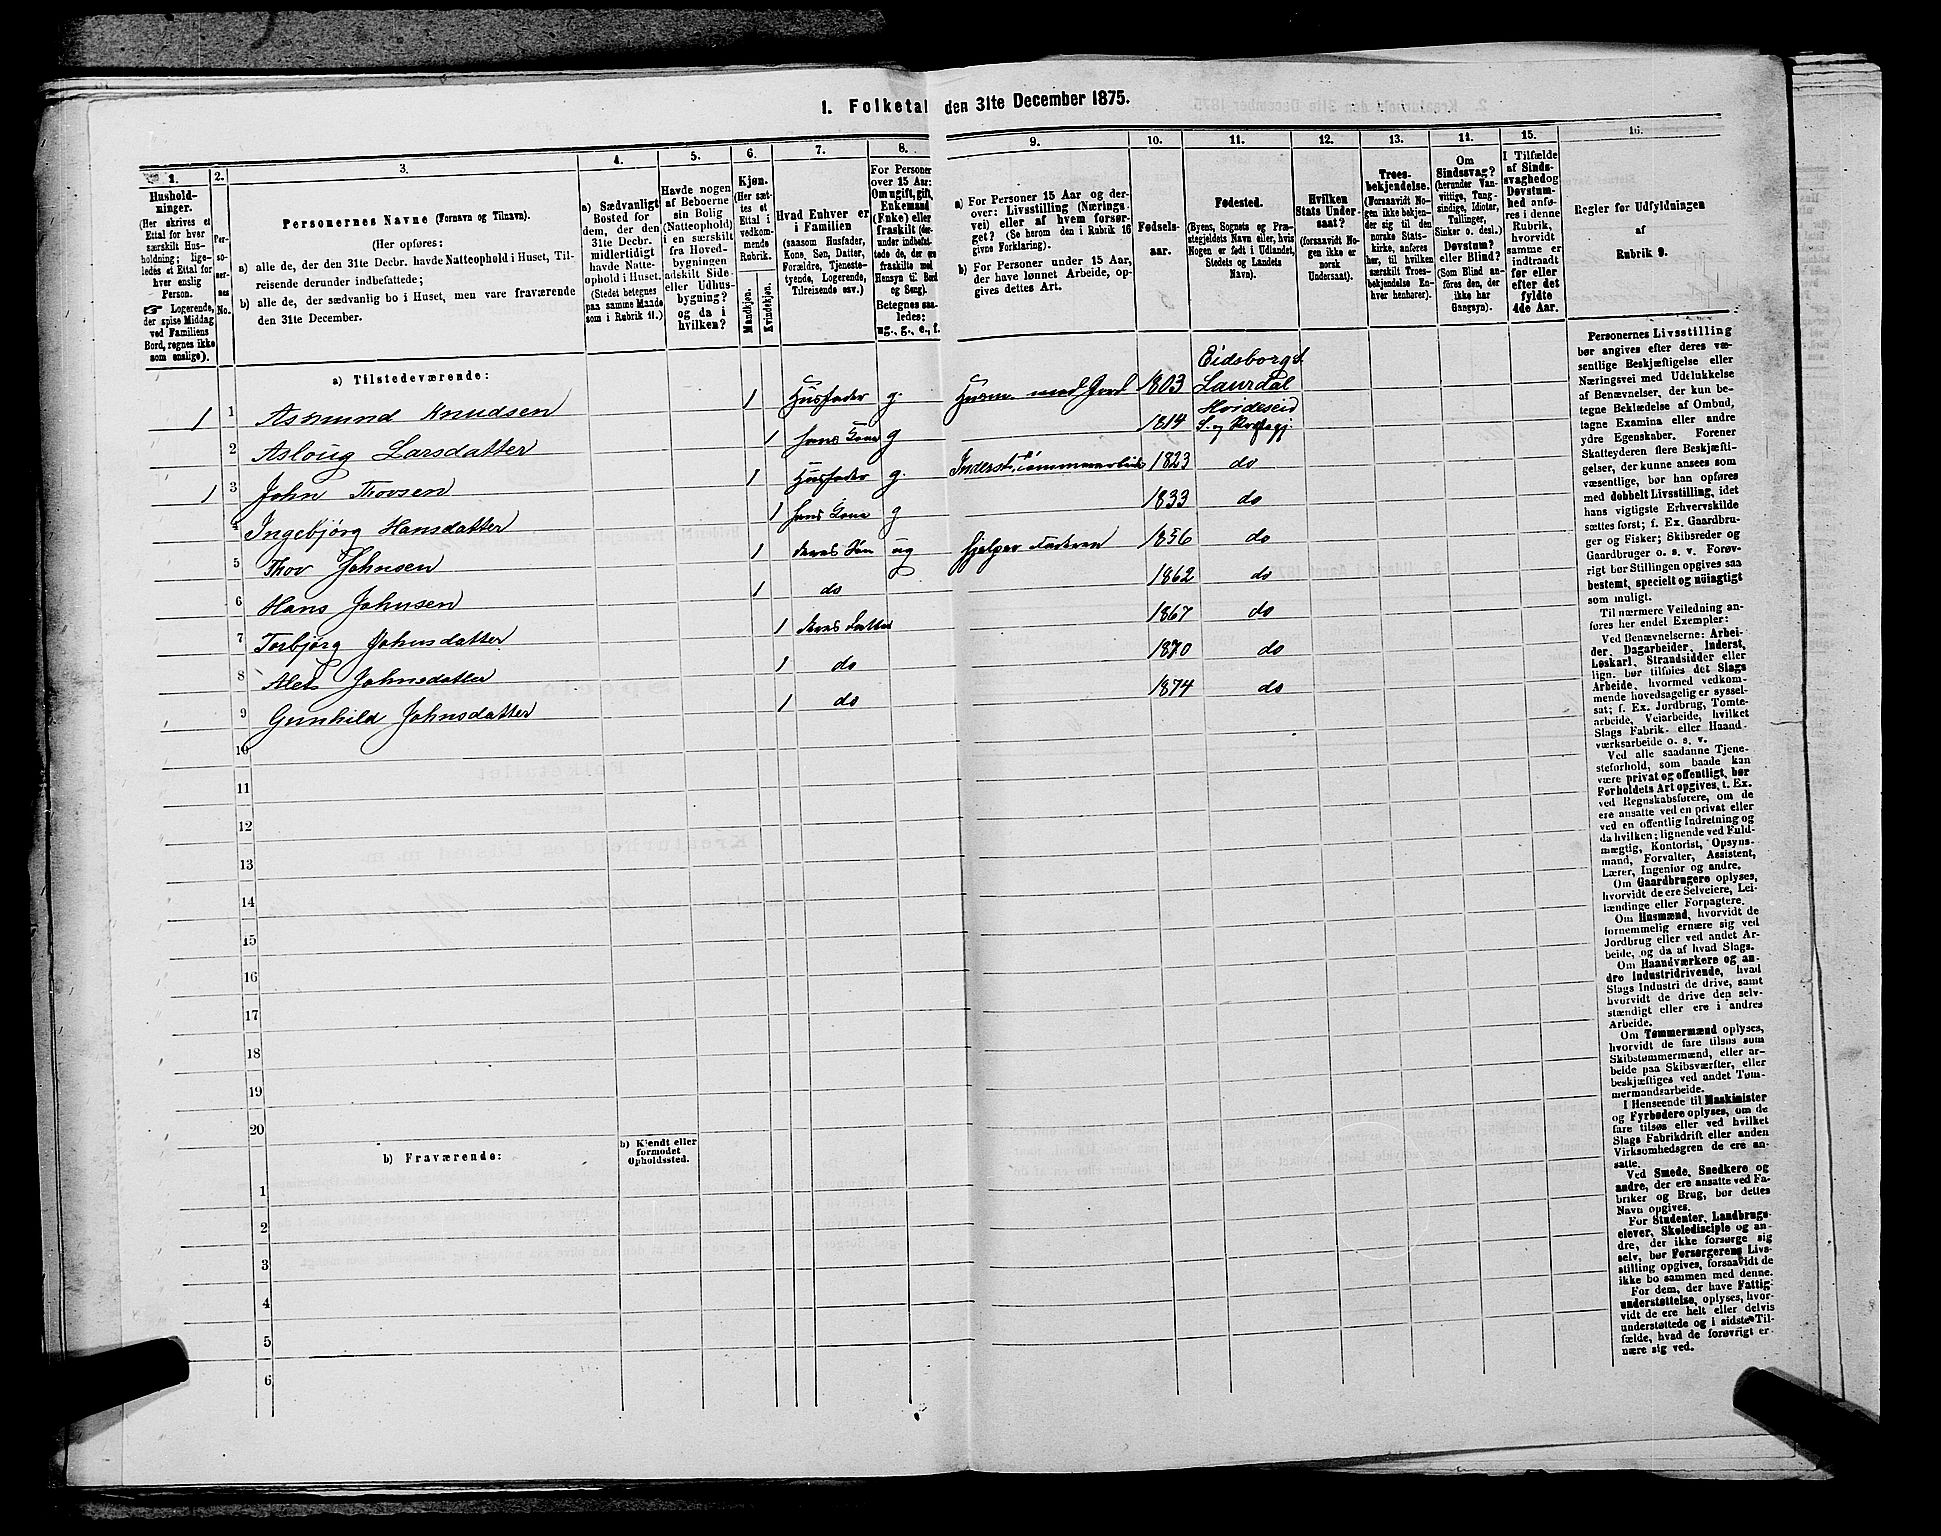 1. Folketal den 31te December 1875.
1.
Hushold-
ninger.
(Her skrives et
Ettal for hver
særskilt Hus-
holdning; lige-
ledes et Ettal for
hver enslig
Person.
Logerende,
der spise Middag
ved Familiens
Bord, regnes ikke
som enslige).
2.
Per-
so-
ner-
nes
No.
3.
Personernes Navne (Fornavn og Tilnavn).
(Her opføres:
a) alle de, der den 31te Decbr. havde Natteophold i Huset, Til-
reisende derunder indbefattede;
b) alle de, der sædvanlig bo i Huset, men vare fraværende
den 31te December.
4.
a) Sædvanligt
Bosted for
dem, der den
31te Decbr.
midlertidigt
havde Natte-
ophold i Huset.
(Stedet betegnes
paa samme Maade
som i Rubrik 11.)
5.
Havde nogen
af Beboerne
sin Bolig
(Natteophold)
i en særskilt
fra Hoved-
bygningen
adskilt Side-
eller Udhus-
bygning?
og da i
hvilken?
6.
Kjøn.
(Her sæt-
tes et
Ettal i
vedkom-
mende
Rubrik.
Mandkjøn.
Kvindekjøn.
7.
Hvad Enhver er
i Familien
(saasom Husfader,
Kone, Søn, Datter,
Forældre, Tjeneste-
tyende, Logerende,
Tilreisende osv.)
8.
For Personer
over 15 Aar:
Om ugift, gift,
Enkemand
(Enke) eller
fraskilt (der-
under indbefat-
tede de, der ere
fraskilte med
Hensyn til Bord
og Seng).
Betegnes saa-
ledes:
ug., g., e., f.
9.
a) For Personer 15 Aar og der-
over: Livsstilling (Nærings-
vei) eller af hvem forsør-
get? (Se herom den i Rubrik 16
givne Forklaring).
b) For Personer under 15 Aar,
der have lønnet Arbeide, op-
gives dettes Art.
10.
Fødsels-
aar.
11.
Fødested.
(Byens, Sognets og Præ-
stegjeldets Navn eller, hvis
Nogen er født i Udlandet,
Stedets og Landets
Navn).
12.
Hvilken
Stats Under-
saat?
(forsaavidt No-
gen ikke er
norsk
Undersaat).
13.
Troes-
bekjendelse.
(Forsaavidt No-
gen ikke bekjen-
der sig til den
norske Stats-
kirke, anføres
her, til hvilken
særskilt Troes-
bekjendelse En-
hver henhører).
14.
Om
Sindssvag?
(herunder Van-
vittige, Tung-
sindige, Idioter,
Tullinger,
Sinker o. desl.)
Døvstum?
eller Blind?
(Som Blind an-
føres den, der
ikke har
Gangsyn).
15.
I Tilfælde
af Sinds-
svaghed og
Døvstum-
hed anfø-
res i denne
Rubrik,
hvorvidt
samme er
indtraadt
før eller
efter det
fyldte
4de Aar.
16.
Regler for Udfyldningen
af
Rubrik 9.
a) Tilstedeværende:
1 1 Asmund Knudsen 1 Husfader g. Husm. med Jord 1803 Eidsborg S.
Laurdal
2 Asloug Larsdatter 1 hans Kone g 1814 Hvideseid
S. og Præstegj
1 3 John Thovsen 1 Husfader g. Inderst, Tømmerarbeide 1823 do
4 Ingebjörg Hansdatter 1 hans Kone g 1833 do
5 Thov Johnsen 1 deres Søn ug hjelper Faderen 1856 do
6 Hans Johnsen 1 do 1862 do
7 Torbjörg Johnsdatter 1 deres Datter 1867 do
8 Johnsdatter 1 do 1870 do
9 Gunhild Johnsdatter 1 do 1874 do
10
11
12
13
14
15
16
17
18
19
20
b) Fraværende:
b) Kjendt eller
formodet
Opholdssted.
1
2
3
4
5
6
Personernes Livsstilling
bør angives efter deres væ-
sentlige Beskjæftigelse eller
Næringsvei med Udelukkelse
af Benævnelser, der kun be-
tegne Beklædelse af Ombud,
tagne Examina eller andre
ydre Egenskaber. Forener
Skatteyderen flere Beskjæfti-
gelser, der kunne ansees som
væsentlige, bør han opføres
med dobbelt Livsstilling, idet
hans vigtigste Erhvervskilde
sættes først; f. Ex. Gaardbru-
ger og Fisker; Skibsreder og
Gaardbruger o. s. v. Forøv-
rigt bør Stillingen opgives saa
bestemt, specielt og nøiagtigt
som muligt.
Til nærmere Veiledning an-
føres her endel Exempler:
Ved Benævnelserne: Arbei-
der, Dagarbeider, Inderst,
Løskarl, Strandsidder eller
lign. bør tilføies det Slags
Arbeide, hvormed vedkom-
mende hovedsagelig er syssel-
sat; f. Ex. Jordbrug, Tomte-
arbeide, Veiarbeide, hvilket
Slags Fabrik- eller Haand-
værksarbeide o. s. v.
Ved alle saadanne Tjene-
steforhold, som baade kan
være privat og offentligt, bør
Forholdets Art opgives, t. Ex.
ved Regnskabsførere, om de
ere ansatte ved en privat eller
ved en offentlig Indretning og
da hvilken; lignende ved Fuld-
mægtig, Kontorist, Opsyns-
mand, Forvalter, Assistent,
Lærer, Ingeniør og andre.
Om Gaardbrugere oplyses,
hvorvidt de ere Selveiere, Lei-
lændinge eller Forpagtere.
Om Husmænd, hvorvidt de
fornemmelig ernære sig ved
Jordbrug eller ved andet Ar-
beide, og da af hvad Slags.
Om Haandværkere og an-
dre Industridrivende, hvad
Slags Industri de drive, samt
hvorvidt de drive den selv-
stændigt eller ere i andres
Arbeide.
Om Tømmermænd oplyses,
hvorvidt de fare tilsøs som
Skibstømmermænd, eller ar-
beide paa Skibsværfter, eller
beskjæftiges ved andet Tøm-
mermandsarbeide.
I Henseende til Maskinister
og Fyrbødere oplyses, om de
fare tilsøs eller ved hvilket
Slags Fabrikdrift eller anden
Virksomhedsgren de ere an-
satte.
Ved Smede, Snedkere og
andre, der ere ansatte ved Fa-
briker og Brug, bør dettes
Navn opgives.
For Studenter, Landbrugs-
elever, Skoledisciple og an-
dre, der ikke forsørge sig
selv, bør Forsørgerens Livs-
stilling opgives, forsaavidt de
ikke bo sammen med denne.
For dem, der have Fattig-
understøttelse, oplyses, hvor-
vidt de ere helt eller delvis
understøttede og i sidste Til-
fælde, hvad de forøvrigt er-
nære sig ved.